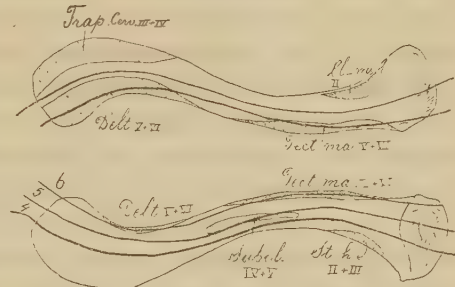 Trap. Cerv. III-IV
II
Delt I+II
Pect ma. V+VI
6
5
4
Delt I+II
Pect ma
Subcl.
IV+V
St h.
II+III